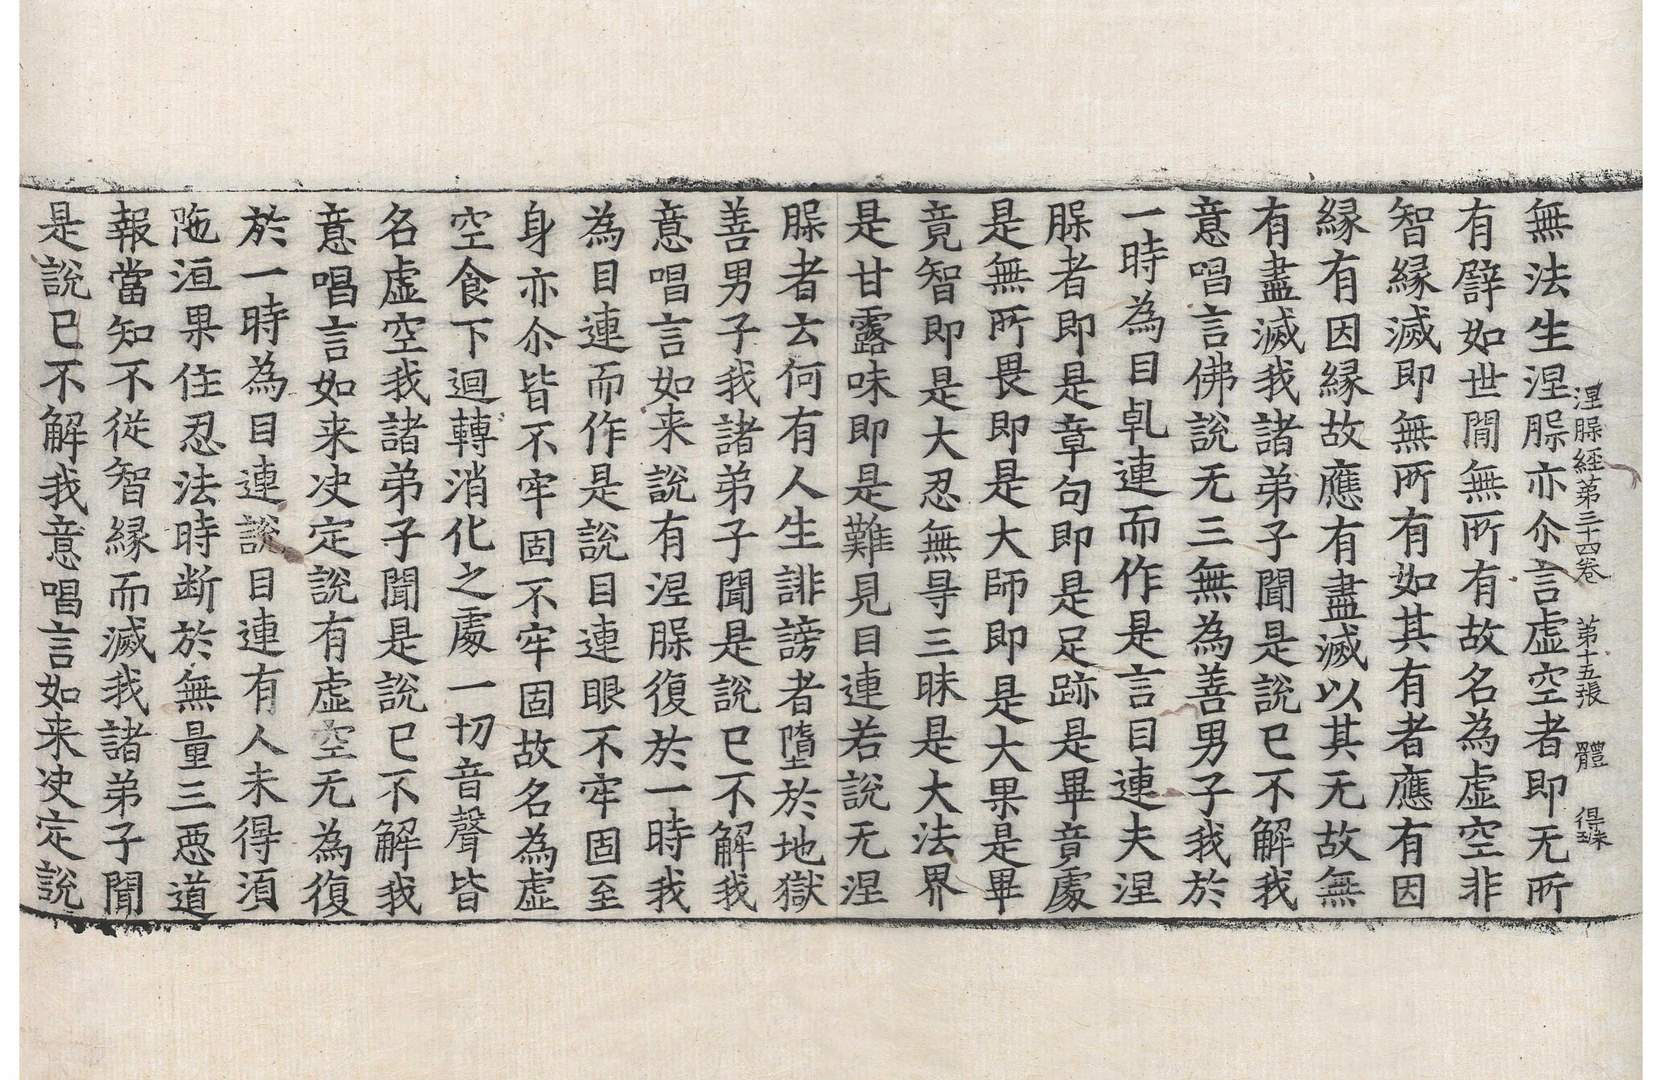 涅槃経第三十四卷　第十五張　體　得珠
無法生涅槃亦尒言虛空者即无所
有譬如世間無所有故名為虛空非
智緣滅即無所有如其有者應有因
緣有因緣故應有盡滅以其无故無
有盡滅我諸弟子聞是說已不解我
意唱言佛說无三無為善男子我於
一時為目乹連而作是言目連夫涅
槃者即是章句即是足跡是畢竟處
是無所畏即是大師即是大果是畢
竟智即是大忍無㝵三昧是大法界
是甘露味即是難見目連若說无涅
槃者云何有人生誹謗者墮於地獄
善男子我諸弟子聞是說已不解我
意唱言如来說有涅槃復於一時我
為目連而作是說目連眼不牢固至
身亦尒皆不牢固不牢固故名為虛
空食下迴轉消化之處一切音聲皆
名虛空我諸弟子聞是說已不解我
意唱言如来决定說有虛空无為復
於一時為目連說目連有人未得湏
陁洹果住忍法時断於無量三惡道
報當知不從智緣而滅我諸弟子聞
是說已不解我意唱言如来决定說